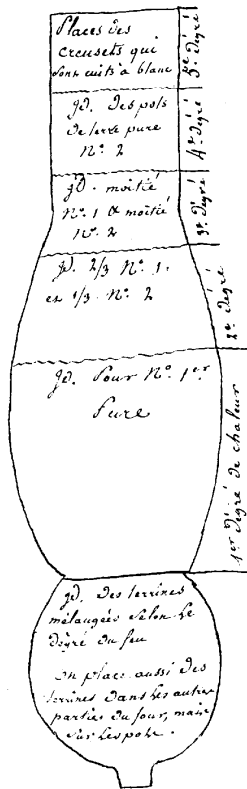 Places des
creusets qui
sont cuits à blanc
5me dégré
jd. des pots
de terre pure
No. 2
4e dégré
jd. moitié
No. 1 & moitié
No. 2
3e dégré
jd. 2/3 No. 1.
et 1/3 No. 2
2e dégré
jd. Pour No. 1er
Pure
1er Dégré de chaleur
jd. des terrines
mélangées selon le
dégré du feu
on place aussi des
terrines dans les autres
parties du four, mais
sur les pots.